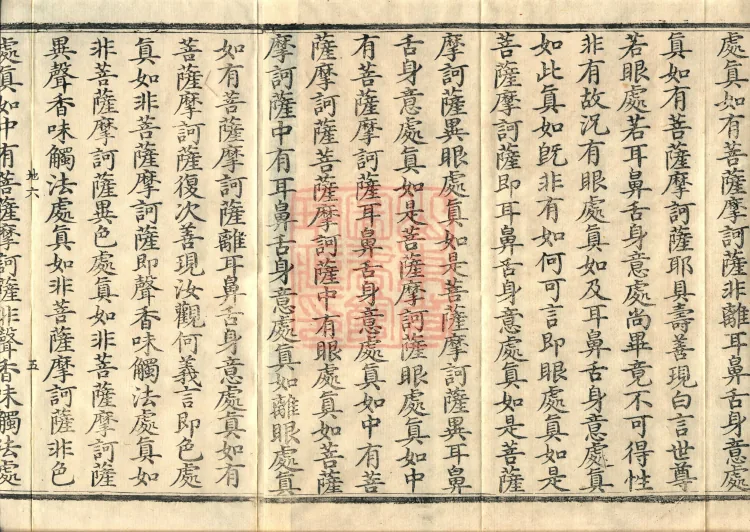 處眞如有菩薩摩訶薩非離耳鼻舌身意處
眞如有菩薩摩訶薩耶具壽善現白言世尊
若眼處若耳鼻舌身意處尚畢竟不可得性
非有故況有眼處眞如及耳鼻舌身意處眞
如此眞如旣非有如何可言即眼處眞如是
菩薩摩訶薩即耳鼻舌身意處眞如是菩薩
摩訶薩異眼處眞如是菩薩摩訶薩異耳鼻
舌身意處眞如是菩薩摩訶薩眼處眞如中
有菩薩摩訶薩耳鼻舌身意處眞如中有菩
薩摩訶薩菩薩摩訶薩中有眼處眞如菩薩
摩訶薩中有耳鼻舌身意處眞如離眼處眞
如有菩薩摩訶薩離耳鼻舌身意處眞如有
菩薩摩訶薩復次善現汝觀何義言即色處
眞如非菩薩摩訶薩即聲香味觸法處眞如
非菩薩摩訶薩異色處眞如非菩薩摩訶薩
異聲香味觸法處眞如非菩薩摩訶薩非色
地六 五
處眞如中有菩薩摩訶薩非聲香味觸法處